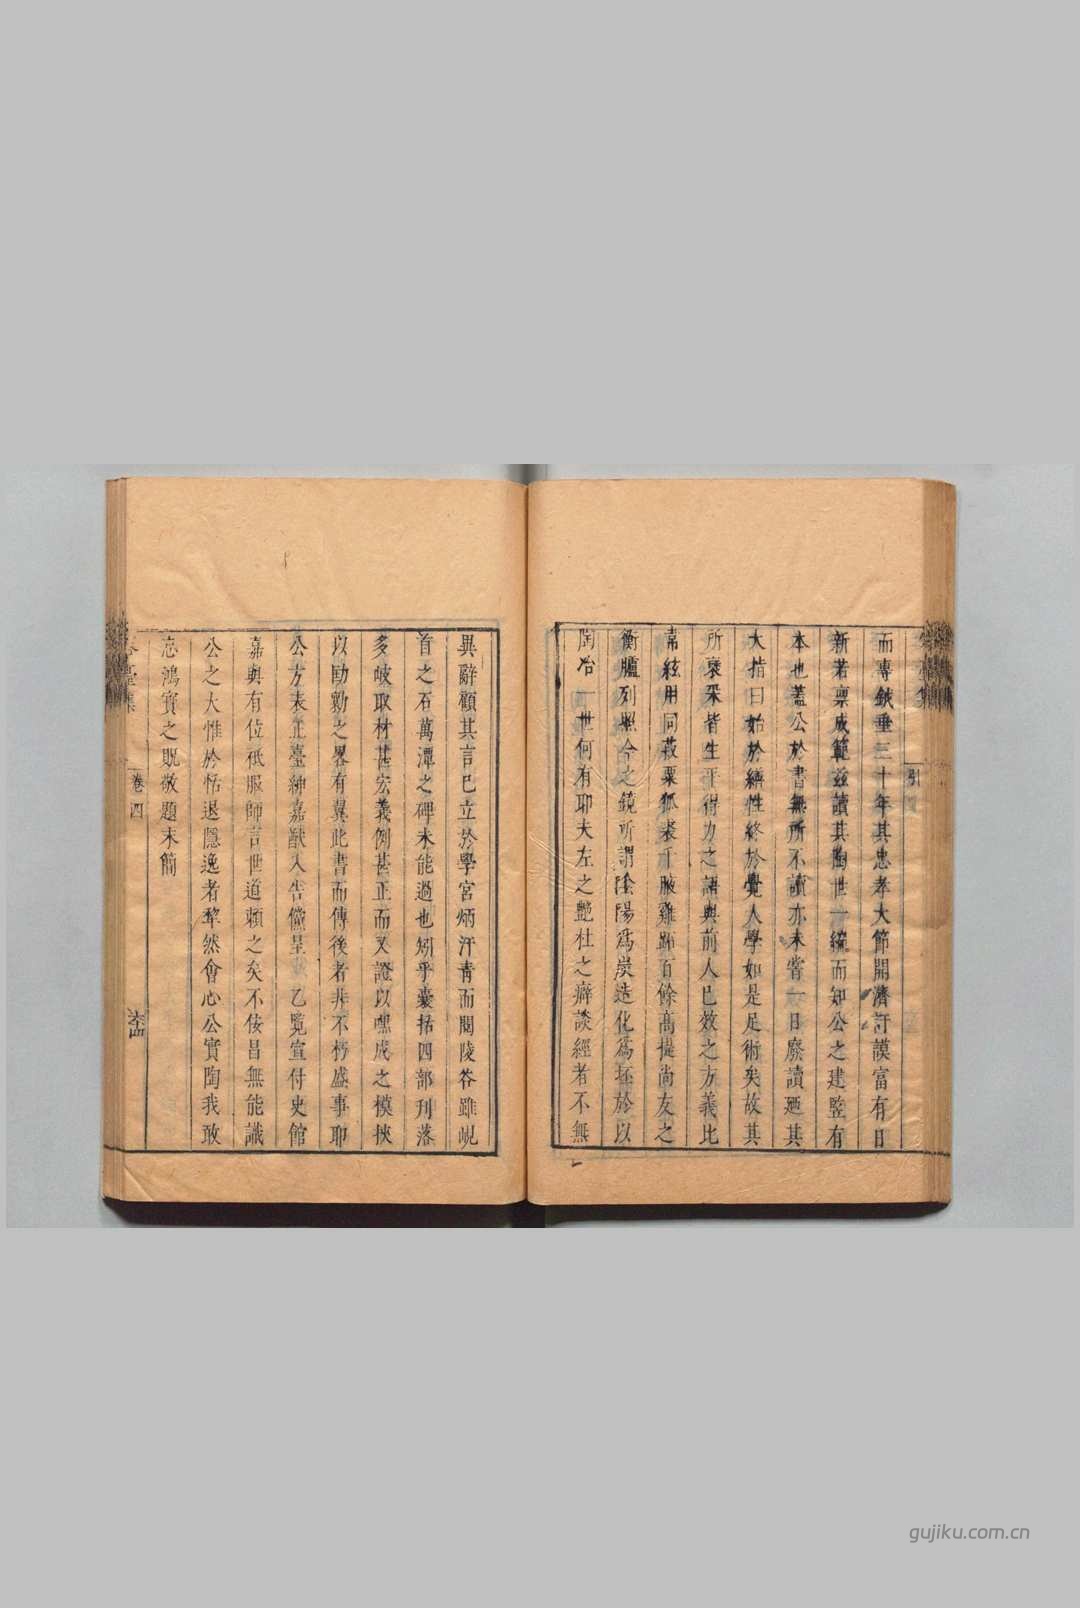 而專鉞垂三十年其忠孝大節開濟訏謨富有日
新若禀成範兹讀其陶世一編而知公之建竪有
本也蓋公於書無所不讀亦未嘗一日廢讀廼其
大指曰始於繕性終於覺人學如是足術矣故其
所裒采皆生平得力之語與前人已效之方義比
韋絃用同菽粟狐裘千腋雞跖百餘髙提尚友之
衡臚列照今之鏡所謂陰陽為炭造化為坯於以
陶冶一世何有耶夫左之艷杜之癖談經者不無
引
異辭顧其言已立於學宮炳汗青而閟陵谷雖峴
首之石萬潭之碑未能過也矧乎囊括四部刋落
多岐取材甚宏義例甚正而又證以嘿成之模挾
以劻勷之畧有翼此書而傳後者非不朽盛事耶
公方表正臺紳嘉猷入告儻呈乙覽宣付史館
嘉與有位祇服師言世道賴之矣不侫昌無能識
公之大惟於恬退隱逸者犂然會心公實陶我敢
忘鴻寳之貺敬題末簡
容臺集
卷四
gujiku.com.cn